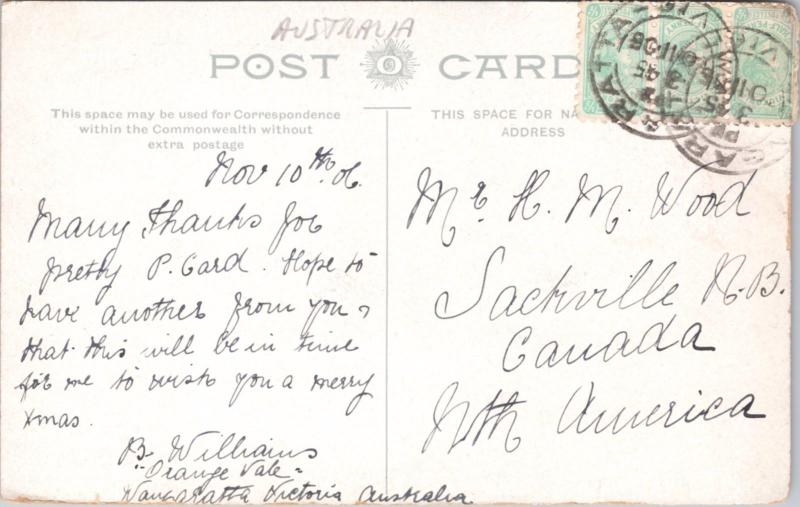 AUSTRALIA
POST CARD
This space may be used for Correspondence
within the Commonwealth without
extra postage
THIS SPACE FOR
ADDRESS
Nov 10th 06.
Many Thanks for
pretty P. Card. Hope to
have another from you &
that this will be in time
for me to wish you a merry
Xmas.
B. Williams
"Orange Vale"
Wangaratta Victoria Australia
Mr. H. M. Wood
Sackville N.B.
Canada
Nth America